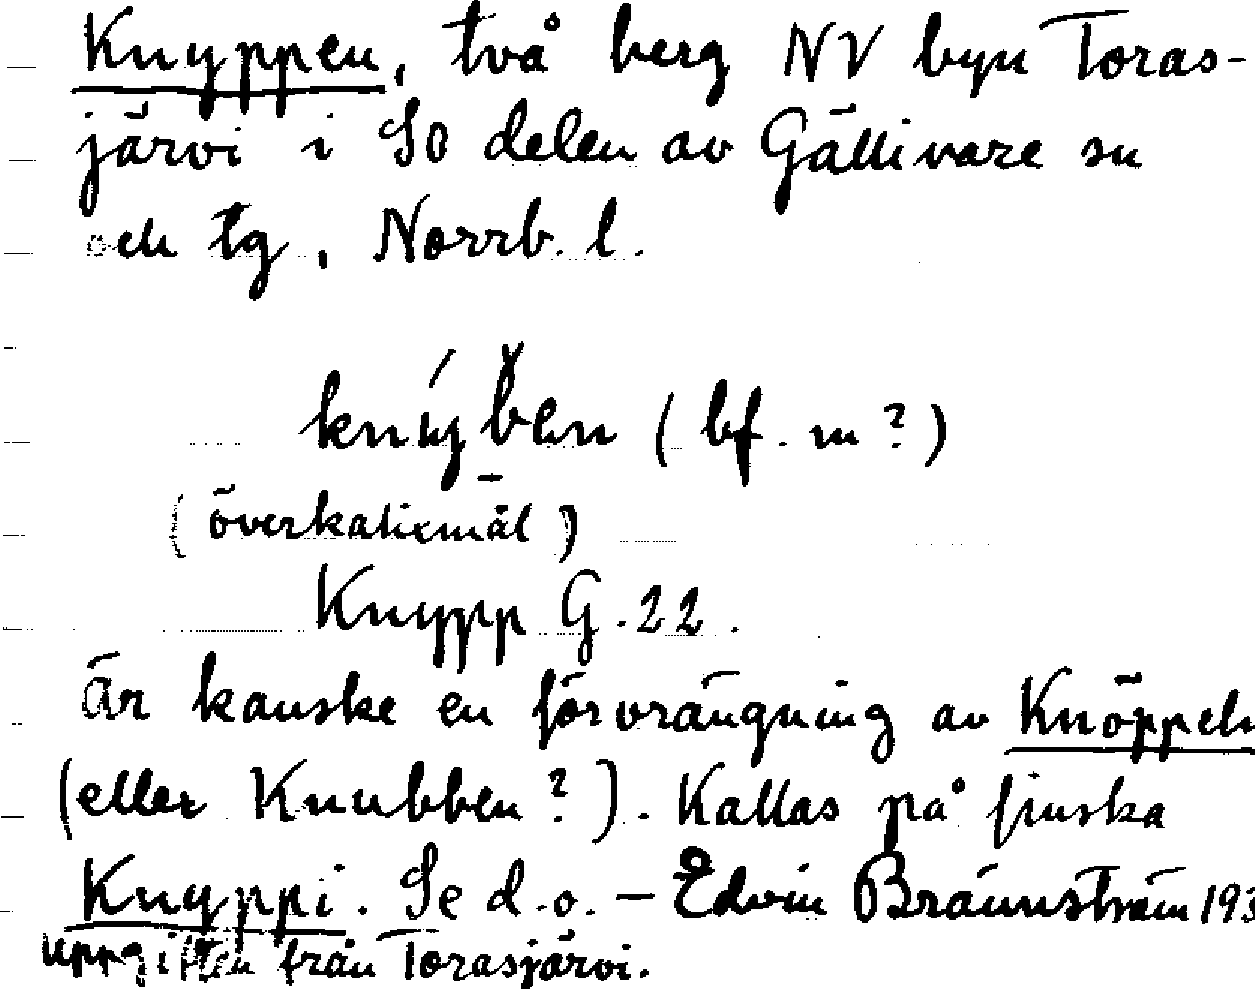 Knyppen, två berg NV byn Toras-
järvi i SO delen av Gällivare sn
och tg, Norrb. l.
(bf. m?)
(överkalixmål)
Knypp G.22.
är kanske en förvrängning av Knöppeln
(eller Knubben?). Kallas på finska
Knyppi. Se d.o. – Edvin Brännström 193
uppgiften från Torasjärvi.